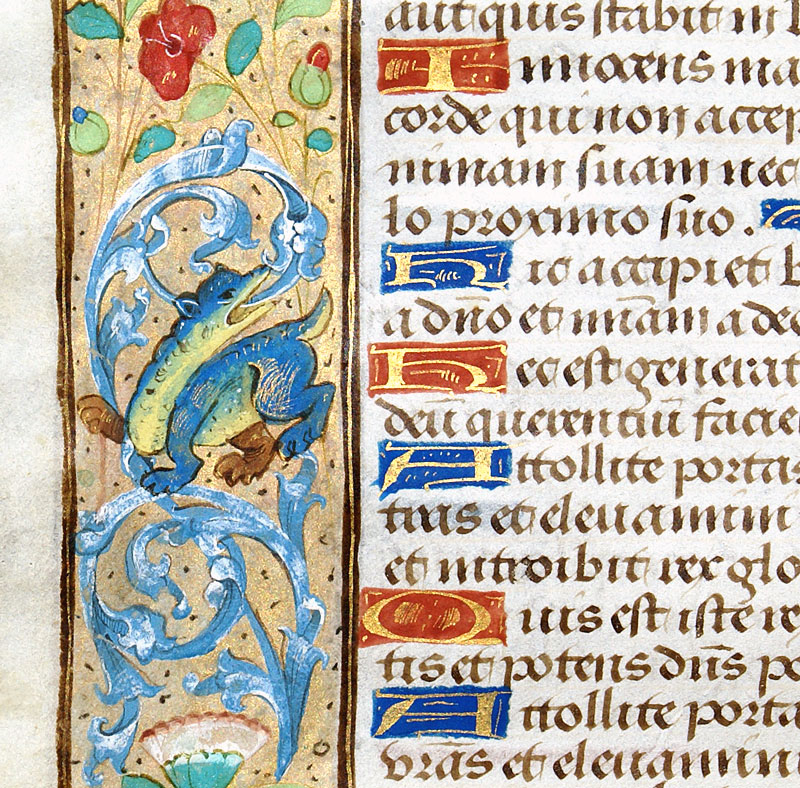 aut quis stabit in l
Innocens ma
corde qui non accep
nimam suam nec
lo proximo suo.
Hic accipiet b
a dño et miam a deo
Hec est generat
deū querentiū facie
Attollite portas
tras et eleuamini
et introibit rex glo
Quis est iste re
tis et potens dūs po
Attollite porta
vrās et eleuamini